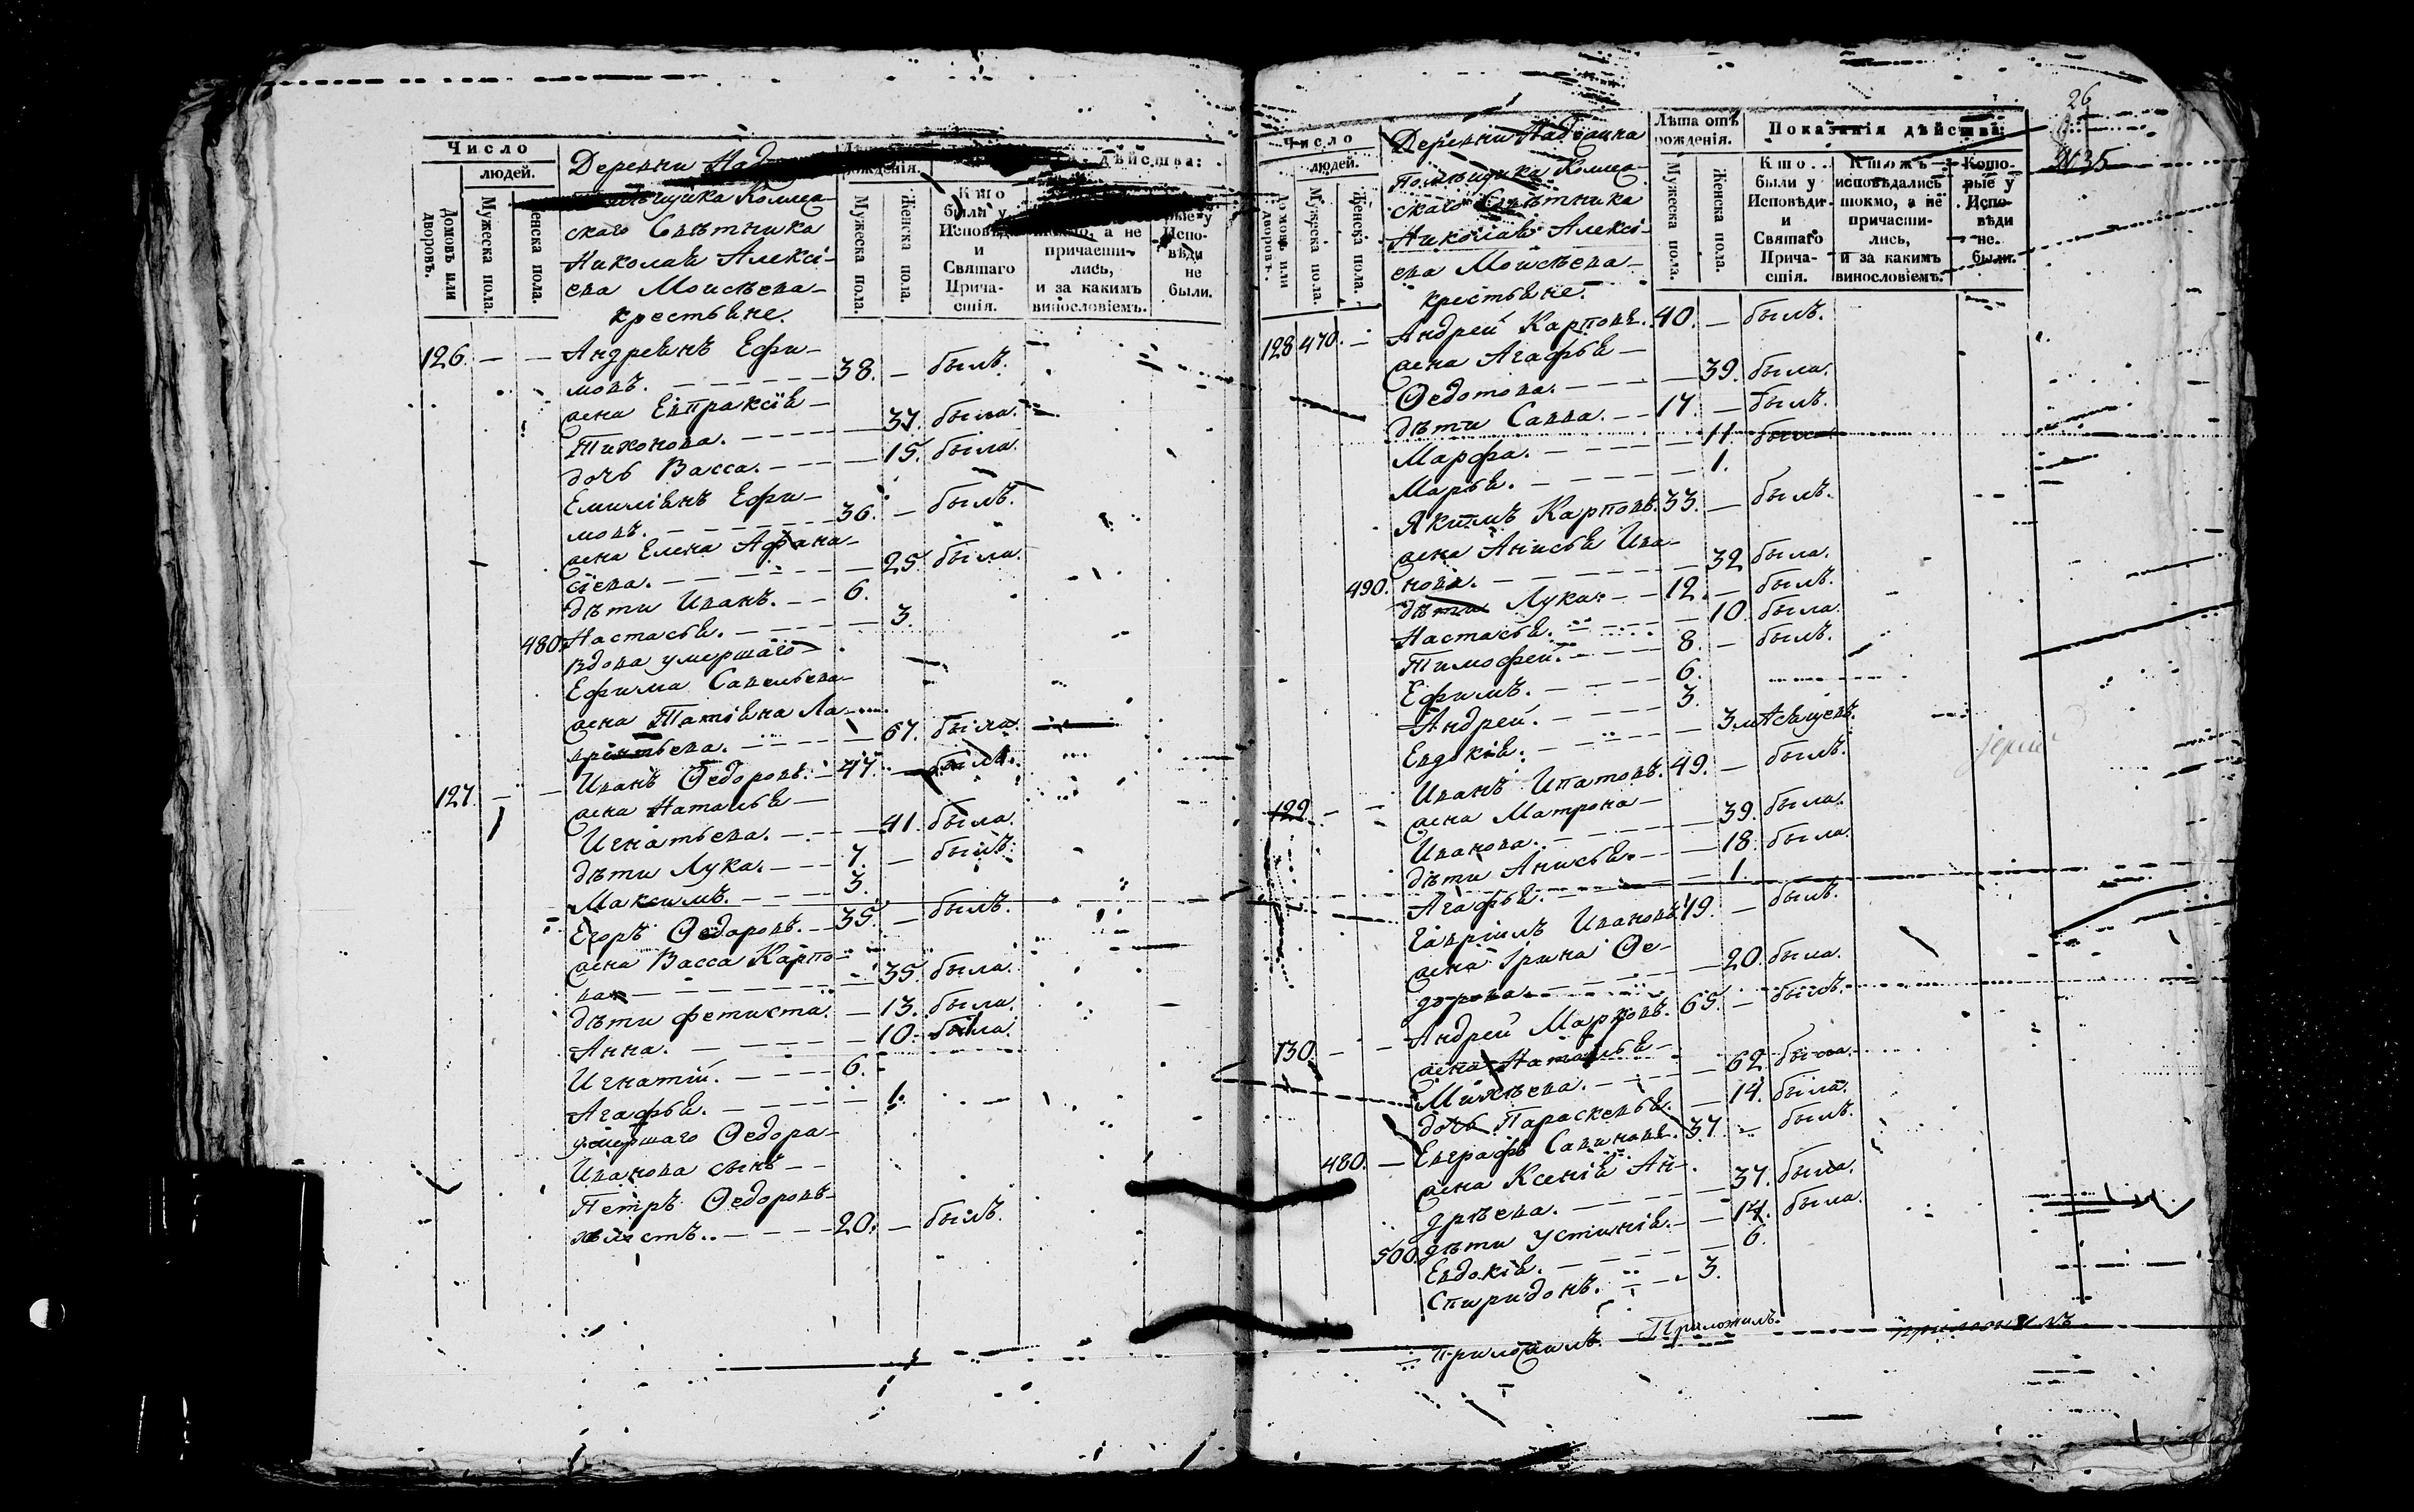 Число
людей.
Домовъ или дворовъ.
Мужеска пола.
Женска пола.
Деревни
Помѣщика Коллеж-
скаго Совѣтника
Николая Алексѣ-
ева Моисѣева
крестьяне.
рожденія.
Мужеска пола.
Женска пола.
дѣйства:
Кто были у Исповѣди и Святаго Прича-стія.
а не причасти-лись, и за какимъ винословіемъ.
рые у Испо-вѣди не были.
126. — — Андреянъ Ефи-
мовъ. 38. — былъ.
жена Евпраксія
Тихонова. 37. была.
дочь Васса. 15. была.
Емиліянъ Ефи-
мовъ. 36. — былъ.
жена Елена Афана-
сіева. 25. была.
дѣти Иванъ. 6.
480. Настасья. 3.
вдова умершаго
Ефима Савельева
жена Татіяна Ла-
врентьева. 67. была.
127. — — Иванъ Ѳедоровъ. 47. — былъ.
жена Наталья
Игнатьева. 41. была.
дѣти Лука. 7. — былъ.
Максимъ. 3.
Егоръ Ѳедоровъ. 35. — былъ.
жена Васса Карпо-
ва 35. была.
дѣти Фетиста. 13. была.
Анна. 10. была.
Игнатій. 6.
Агафья. 1.
умершаго Ѳедора
Иванова сынъ
Петръ Ѳедоровъ
холостъ. 20. — былъ.
26
35
Число
людей.
Домовъ или дворовъ.
Мужеска пола.
Женска пола.
Деревни Надеина
Помѣщика Коллеж-
скаго Совѣтника
Николая Алексѣ-
ева Моисѣева
крестьяне.
Лѣта отъ рожденія.
Мужеска пола.
Женска пола.
Показанія дѣйства:
Кто были у Исповѣди и Святаго Прича-стія.
Ктожъ исповѣдались токмо, а не причасти-лись, и за какимъ винословіемъ.
Кото-рые у Испо-вѣди не были.
128 470. — Андрей Карповъ. 40. — былъ.
жена Агафья
Ѳедотова. 39. была.
дѣти Савва. 17. — былъ.
Марфа. 11 была
Марья. 1.
Якимъ Карповъ. 33. — былъ.
жена Анисья Ива-
490. нова. 32 была.
дѣти Лука. 12. — былъ.
Настасья. 10. была.
Тимофей. 8. — былъ.
Ефимъ. 6.
Андрей. 3.
Евдокія. 3 мѣсяцевъ.
129 — — Иванъ Ипатовъ. 49. — былъ.
жена Матрона
Иванова. 39. была.
дѣти Анисья. 18. была.
Агафья. 1.
Гавріилъ Ивановъ. 19. — былъ.
жена Ірина Ѳе-
дорова. 20. была.
130. — — Андрей Марковъ. 65. — былъ.
жена Наталья
Михѣева. 62. была.
дочь Параскевья. 14. была.
480. — Евграфъ Савиновъ. 37 — былъ.
жена Ксенія Ан-
дрѣева. 37. была.
500. дѣти Устинія. 14. была.
Евдокія. 6.
Спиридонъ. 3.
Приложилъ. Приложилъ. приложилъ